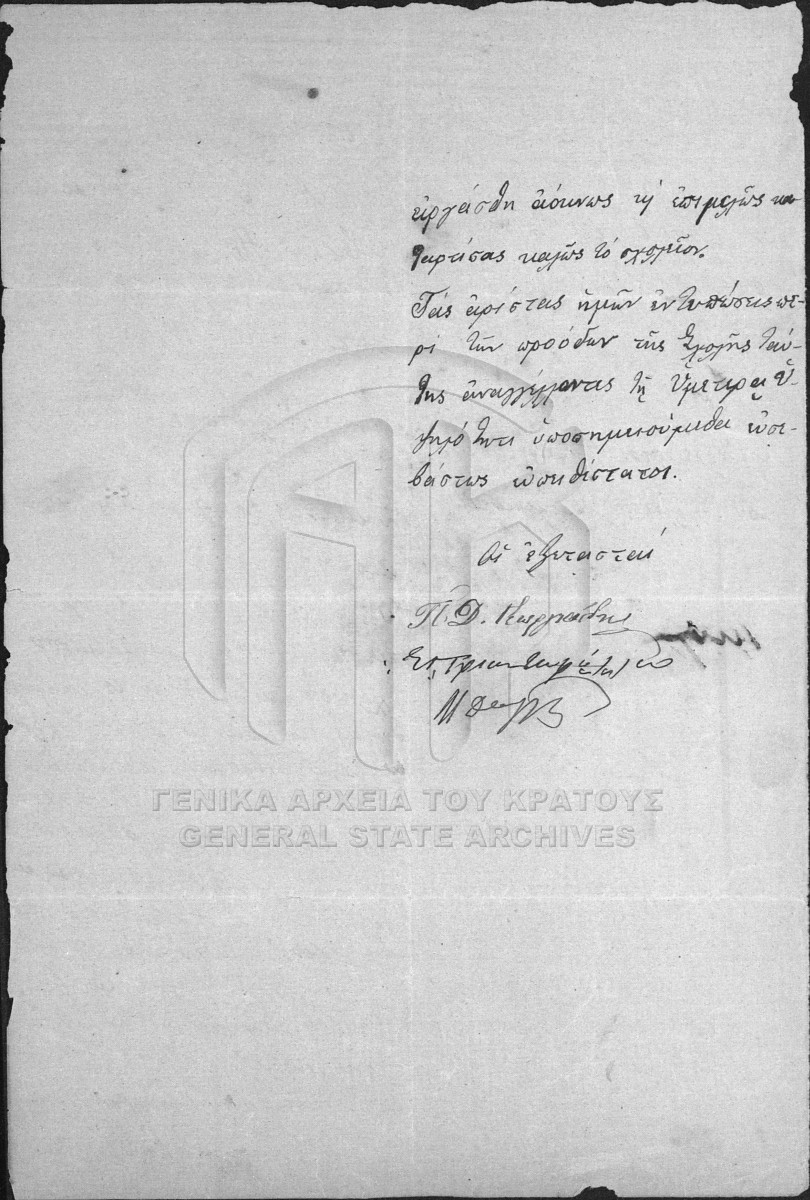 εἰργάσθη ἀόκνως κ ἐπιμελῶς κα
ταρτίσας καλῶς τὸ σχολεῖον.
Τὰς ἀρίστας ἡμῶν ἐντυπώσεις πε-
ρὶ τῶν προόδων τῆς Σχολῆς ταύ-
της ἀναγγέλλοντες τῇ Ὑμετέρᾳ Ὑ-
ψηλότητι ὑποσημειούμεθα εὐσε-
βάστως εὐπειθέστατοι.
Οἱ ἐξετασταὶ
Π. Δ.
ΓΕΝΙΚΑ ΑΡΧΕΙΑ ΤΟΥ ΚΡΑΤΟΥΣ
GENERAL STATE ARCHIVES